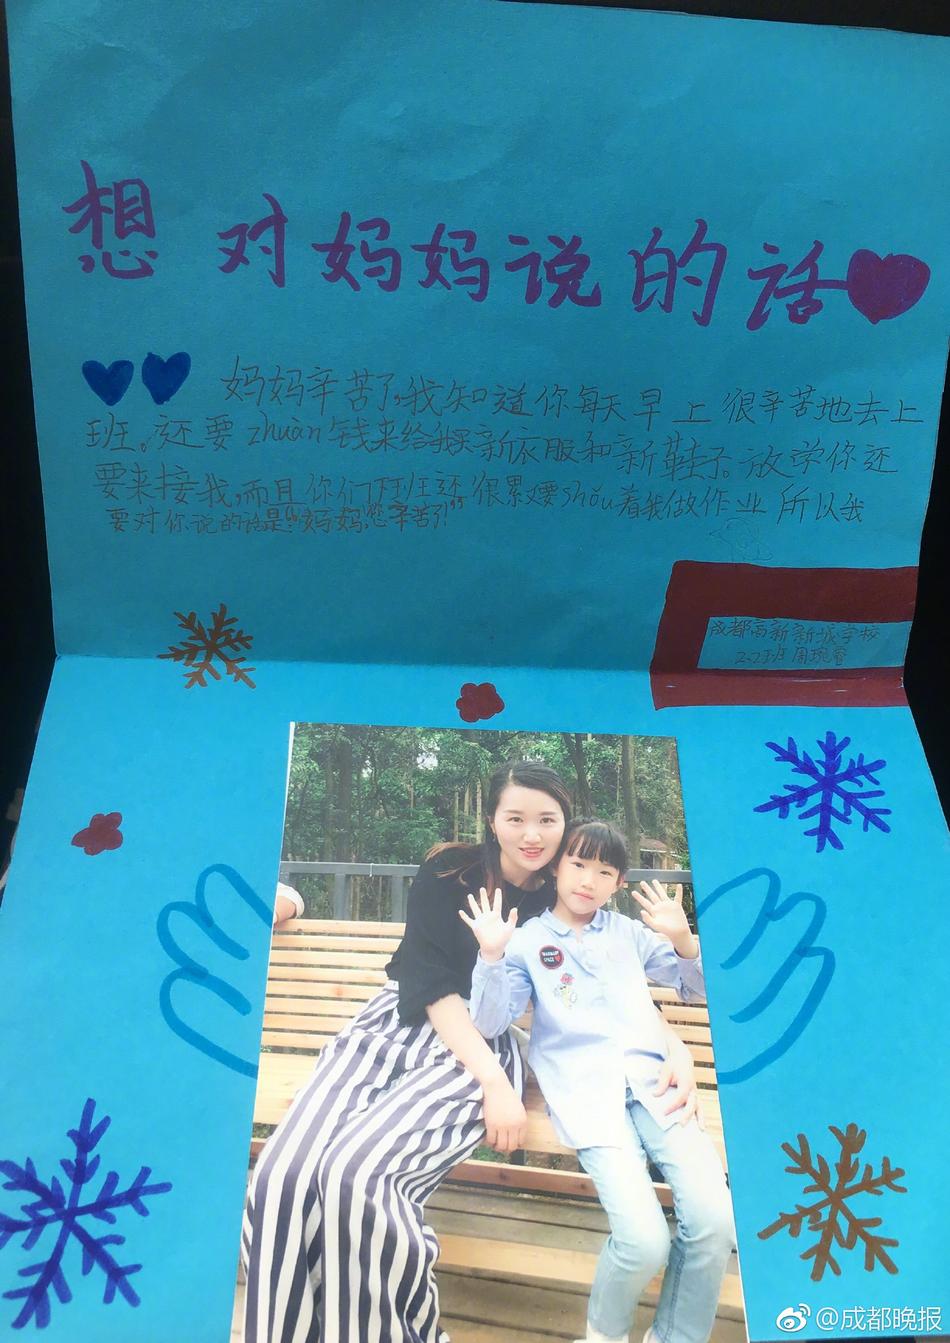 想对妈妈说的话
妈妈辛苦了,我知道你每天早上很辛苦地去上
班。还要zhuàn钱来给我买新衣服和新鞋子。放学你还
要来接我,而且你们上班还很累又要shǒu着我做作业所以我
要对你说的话是:“妈妈您辛苦了!”
成都高新新城学校
2.2班周琬睿
@成都晚报